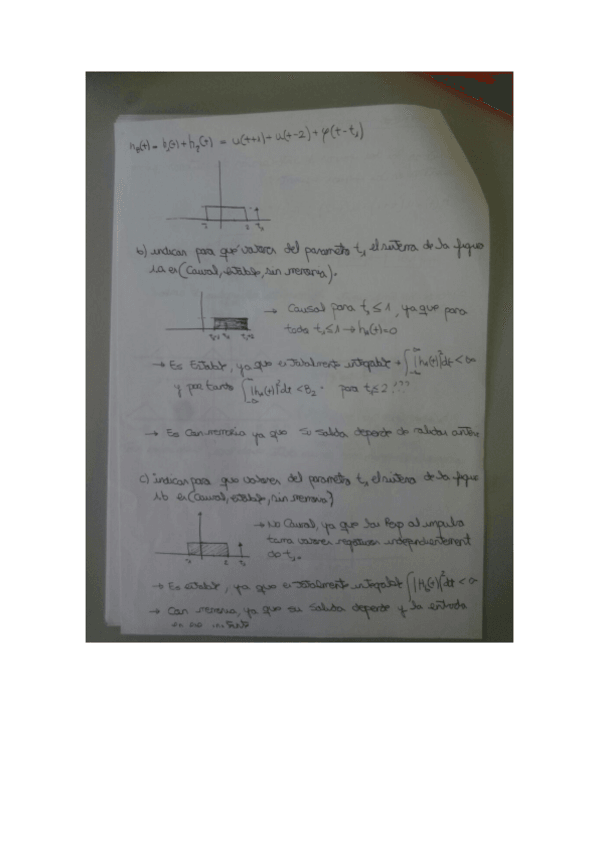 h_B(t) = h_1(t) + h_2(t) = u(t+1) - u(t-2) + φ(t-t_1)
2 t_1
b) indicar para qué valores del parametro t_1 el sistema de la figura
1.a es (Causal, estable, sin memoria).
→ Causal para t_1 ≤ 1, ya que para
toda t_1 ≤ 1 → h_a(t)=0
→ Es Estable, ya que es totalmente integrable → ∫|h_a(t)|²dt < ∞
y por tanto ∫|h_a(t)|²dt < B_2. para t_1 ≤ 2 !??
→ Es Con memoria ya que su salida depende de salidas
c) indicar para que valores del parametro t_1 el sistema de la figura
1b es (Causal, estable, sin memoria)
→ No Causal, ya que la Resp al impulso
toma valores negativos independientemente
de t_1.
2 t_1
→ Es estable, ya que es totalmente integrable ∫|H_b(t)|²dt < ∞
→ Con memoria, ya que su salida depende y la entrada